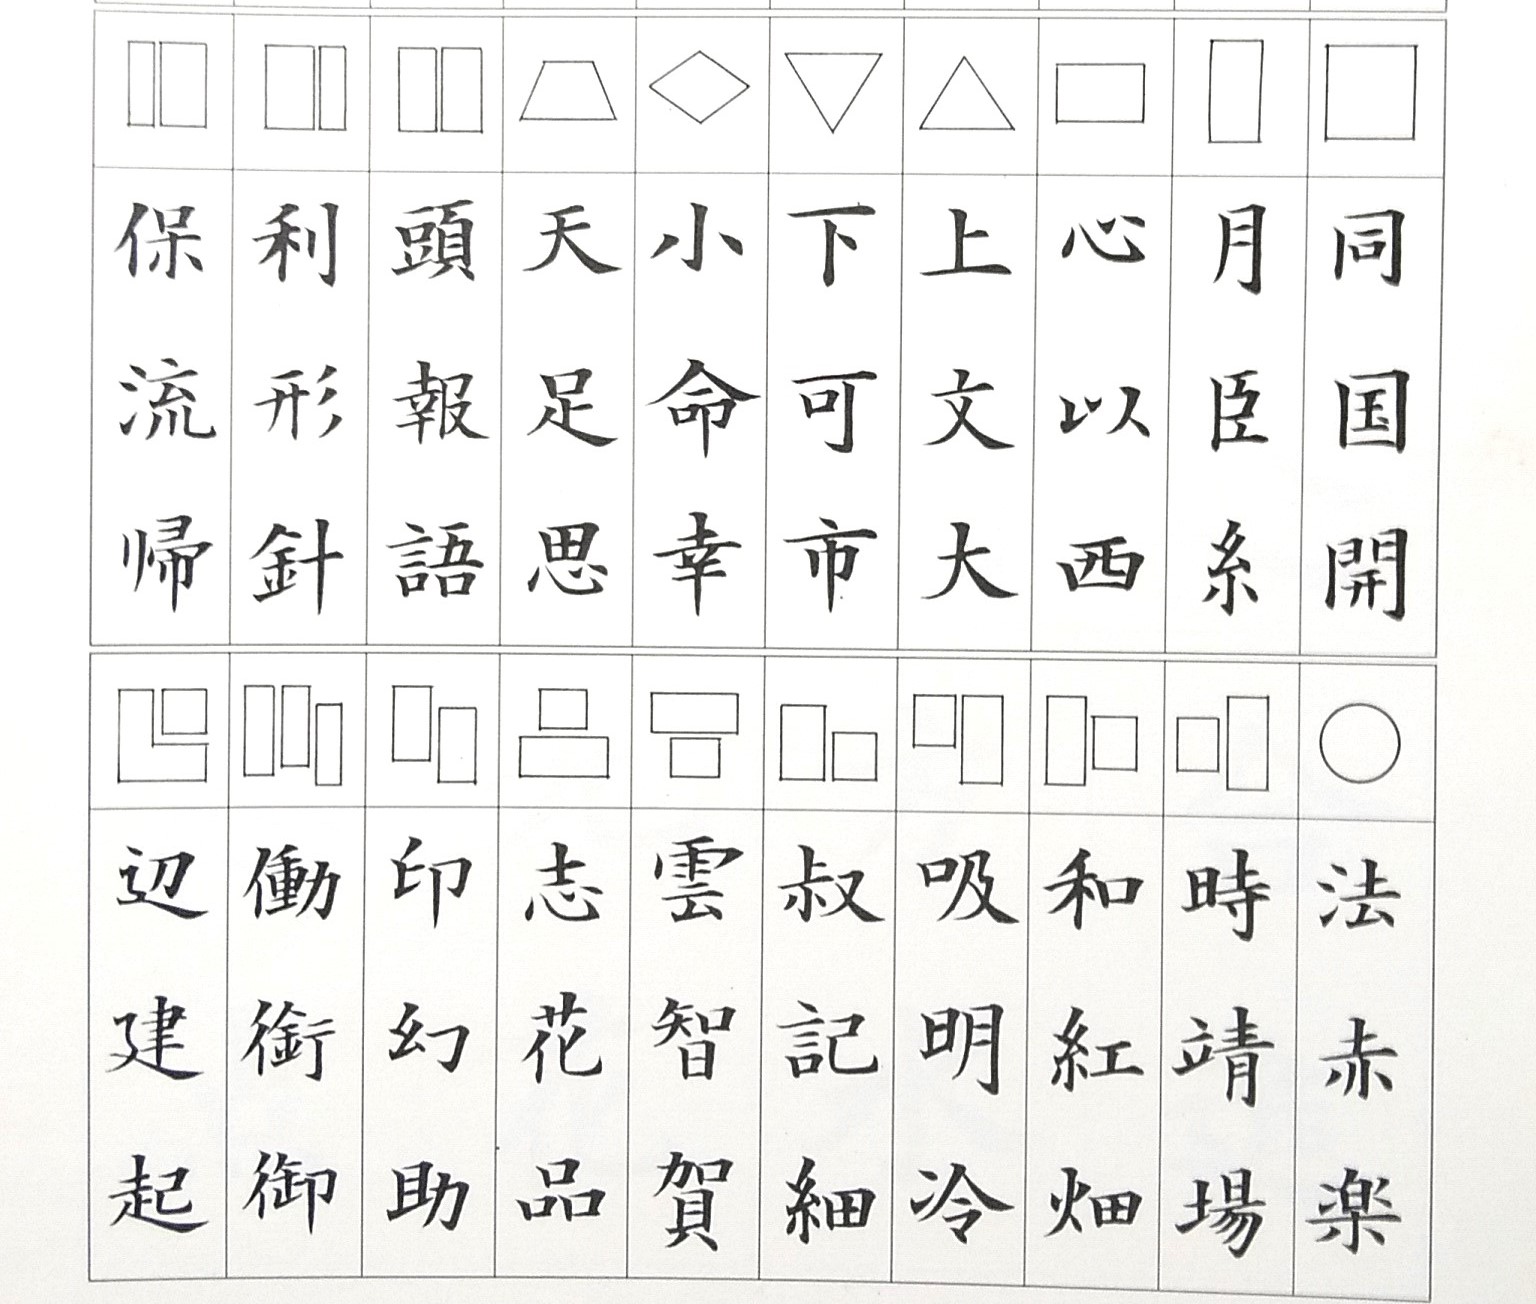 同国開
月臣糸
心以西
上文大
下可市
小命幸
天足思
頭報語
利形針
保流帰
法赤楽
時靖場
和紅畑
吸明冷
叔記細
雲智賀
志花品
印幻助
働銜御
辺建起